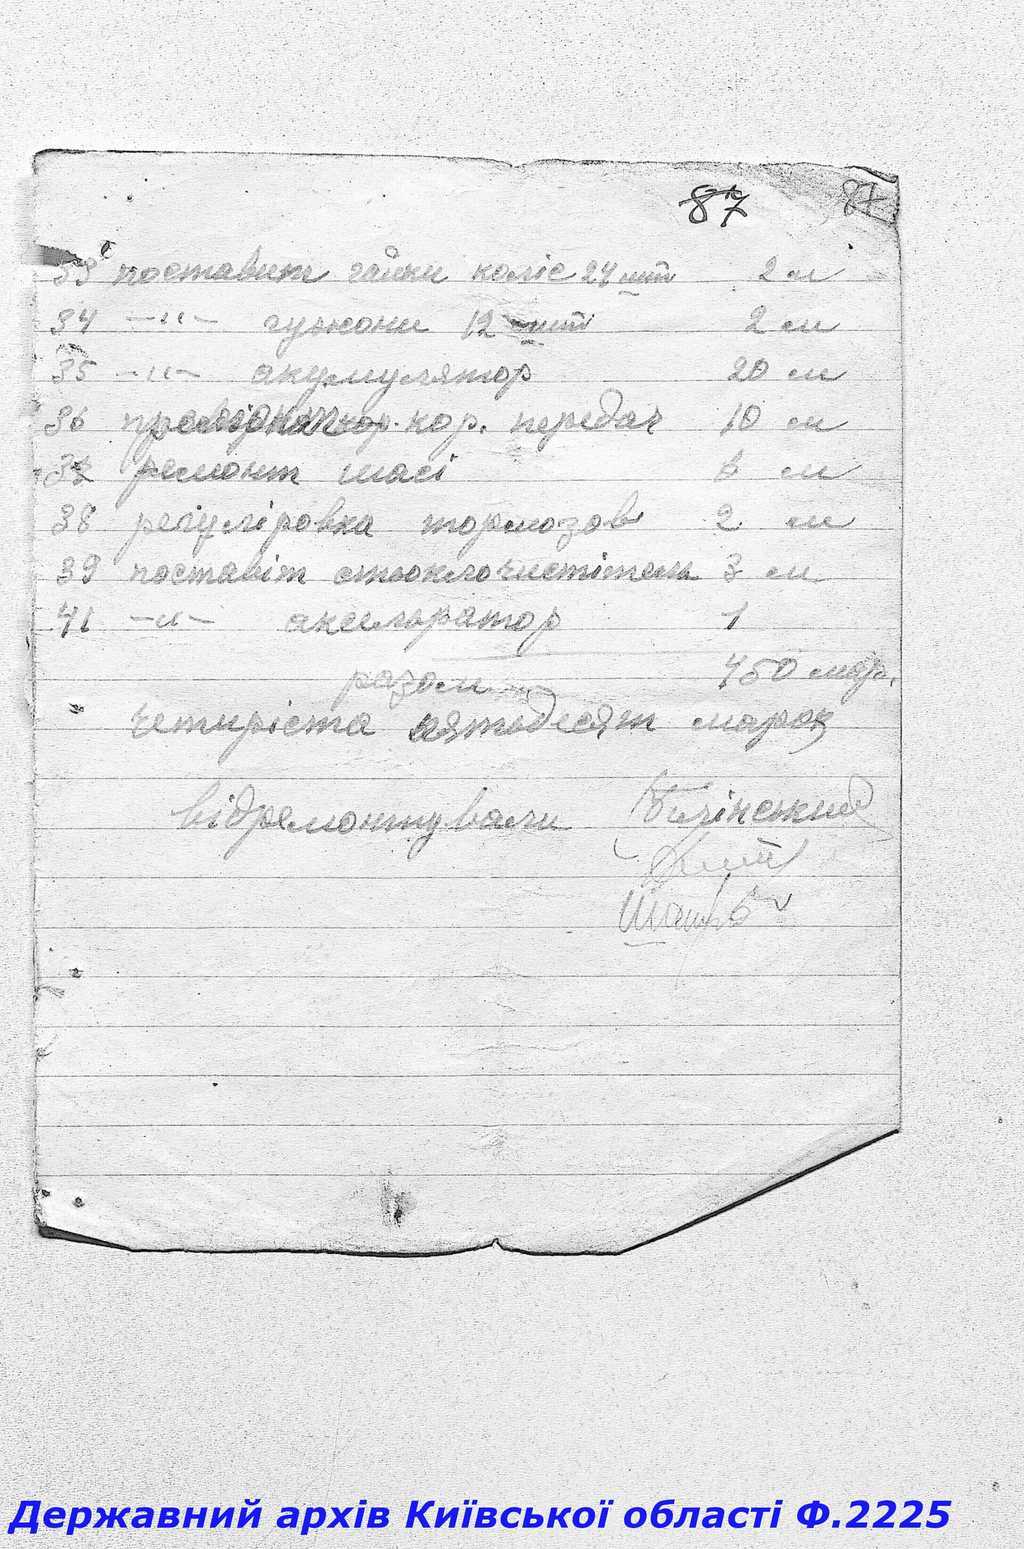 87 87
33 поставит гайки коліс 24 шт 2 м
34 -"- гужони 12 шт 2 м
35 -"- акумулятор 20 м
36 кор. передач 10 м
37 ремонт шасі м
38 регуліровка тормозов 2 м
39 поставіт стьоклочистітель 3 м
41 -"- акселоратор 1
разом 450 мар.
четиріста пятьдесят марок
відремонтували
Державний архів Київської області Ф.2225